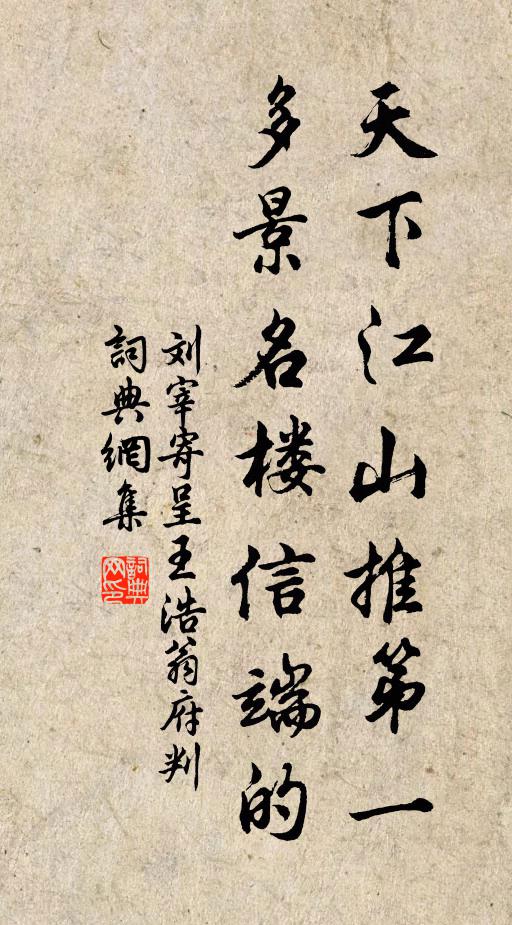 天下江山推第一
多景名楼信端的
刘宰寄呈王浩翁府判
詞典網集
詞典网印